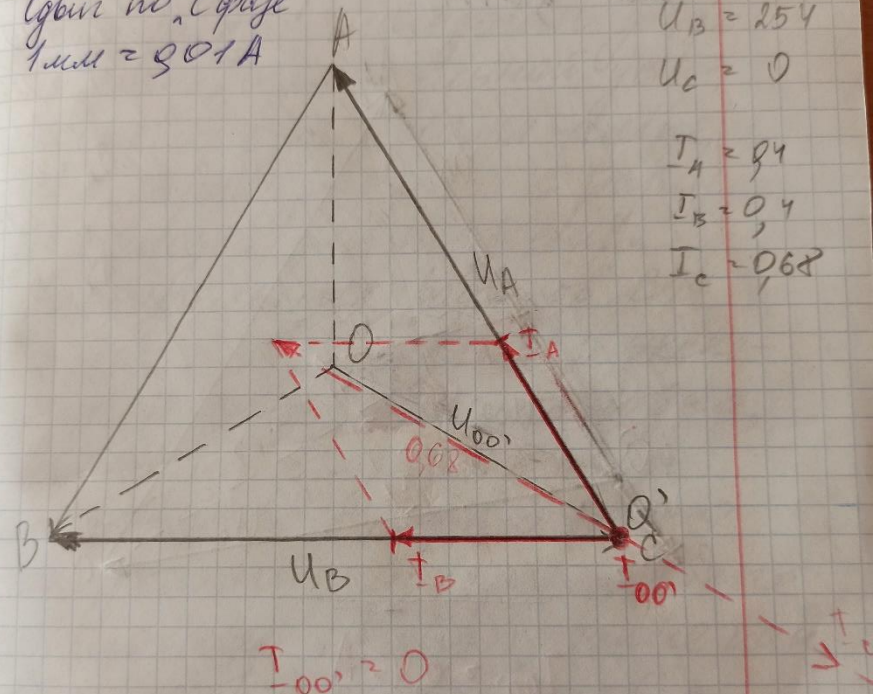 по "С фазе
1мм = 0,01А
U_B = 254
U_C = 0
I_A = 0,4
I_B = 0,4
I_C = 0,68
A
U_A
I_A
O
U_00'
0,68
O'
C
B
U_B
I_B
I_00'
I_C
I_00' = 0